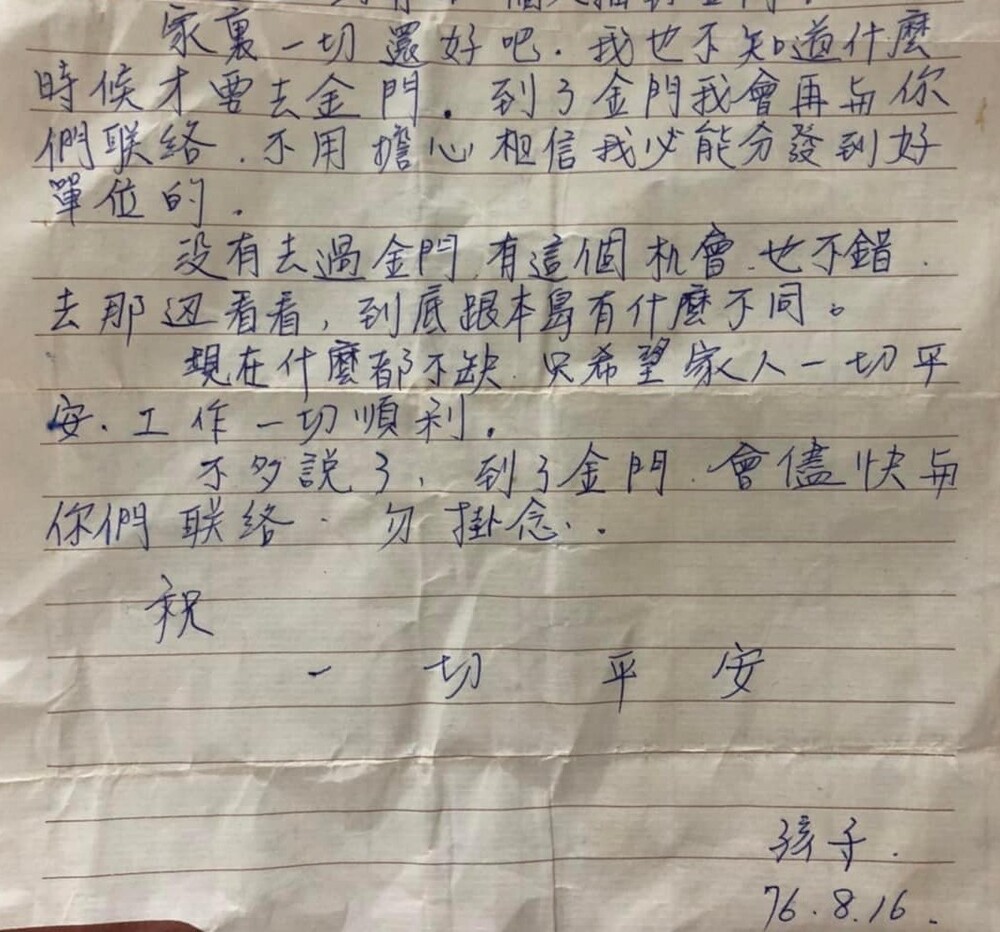 家裏一切還好吧．我也不知道什麼
時候才要去金門．到了金門我會再与你
們联络．不用擔心相信我必能分發到好
單位的．
没有去過金門．有這個机會．也不錯．
去那边看看，到底跟本島有什麼不同。
現在什麼都不缺．只希望家人一切平
安．工作一切順利．
不多說了，到了金門．會儘快与
你們联络．勿掛念．．
祝
一切平安
孩子．
76.8.16.